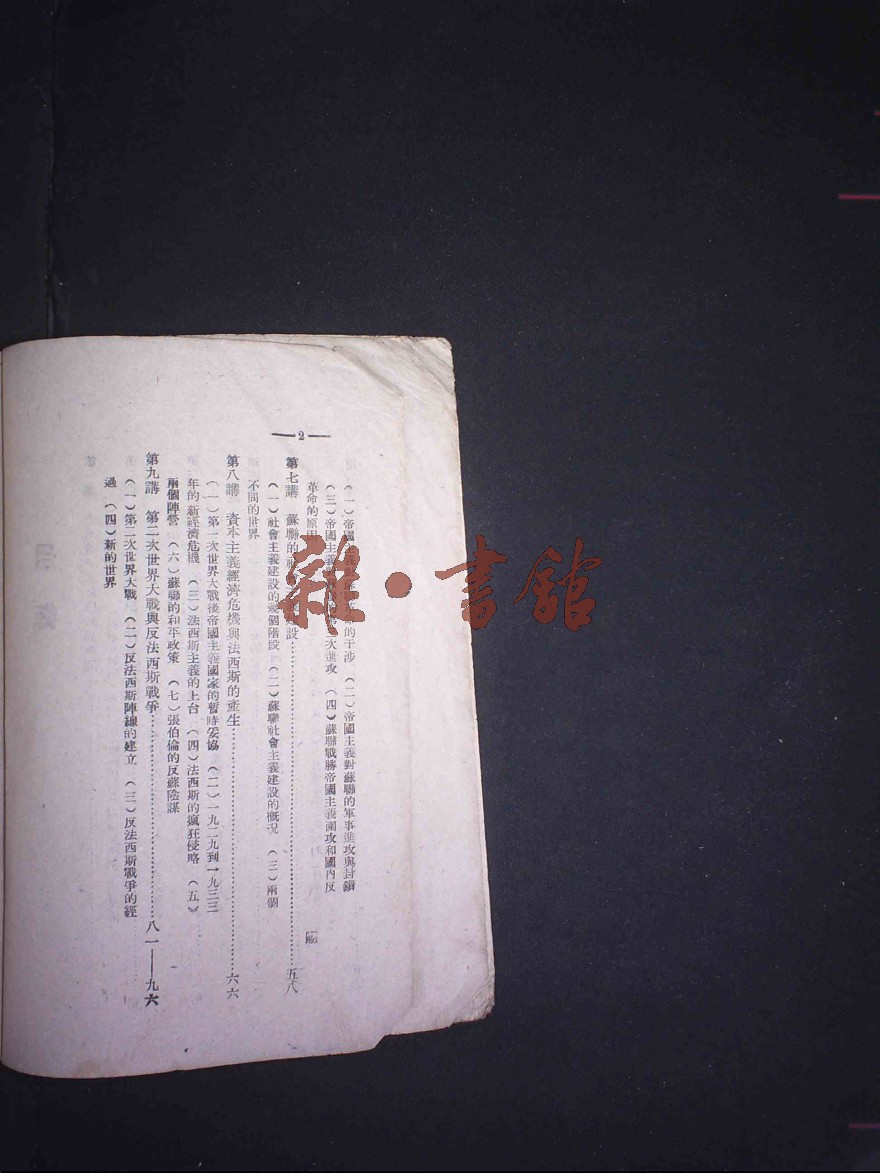 —2—
(一)帝國的干涉 (二)帝國主義對蘇聯的軍事進攻與封鎖
(三)帝國主義次進攻 (四)蘇聯戰勝帝國主義圍攻和國內反
革命的原因
第七講 蘇聯的建設……五八
(一)社會主義建設的幾個階段 (二)蘇聯社會主義建設的概況 (三)兩個
不同的世界
第八講 資本主義經濟危機與法西斯的產生……六六
(一)第一次世界大戰後帝國主義國家的暫時妥協 (二)一九二九到一九三三
年的新經濟危機 (三)法西斯主義的上台 (四)法西斯的瘋狂侵略 (五)
兩個陣營 (六)蘇聯的和平政策 (七)張伯倫的反蘇陰謀
第九講 第二次世界大戰與反法西斯戰爭……八一——九六
(一)第二次世界大戰 (二)反法西斯陣線的建立 (三)反法西斯戰爭的經
過 (四)新的世界
雜·書館